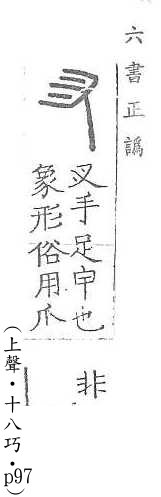 六書正譌
㕚手足甲也
象形俗用爪
非
(上聲・十八巧・p97)